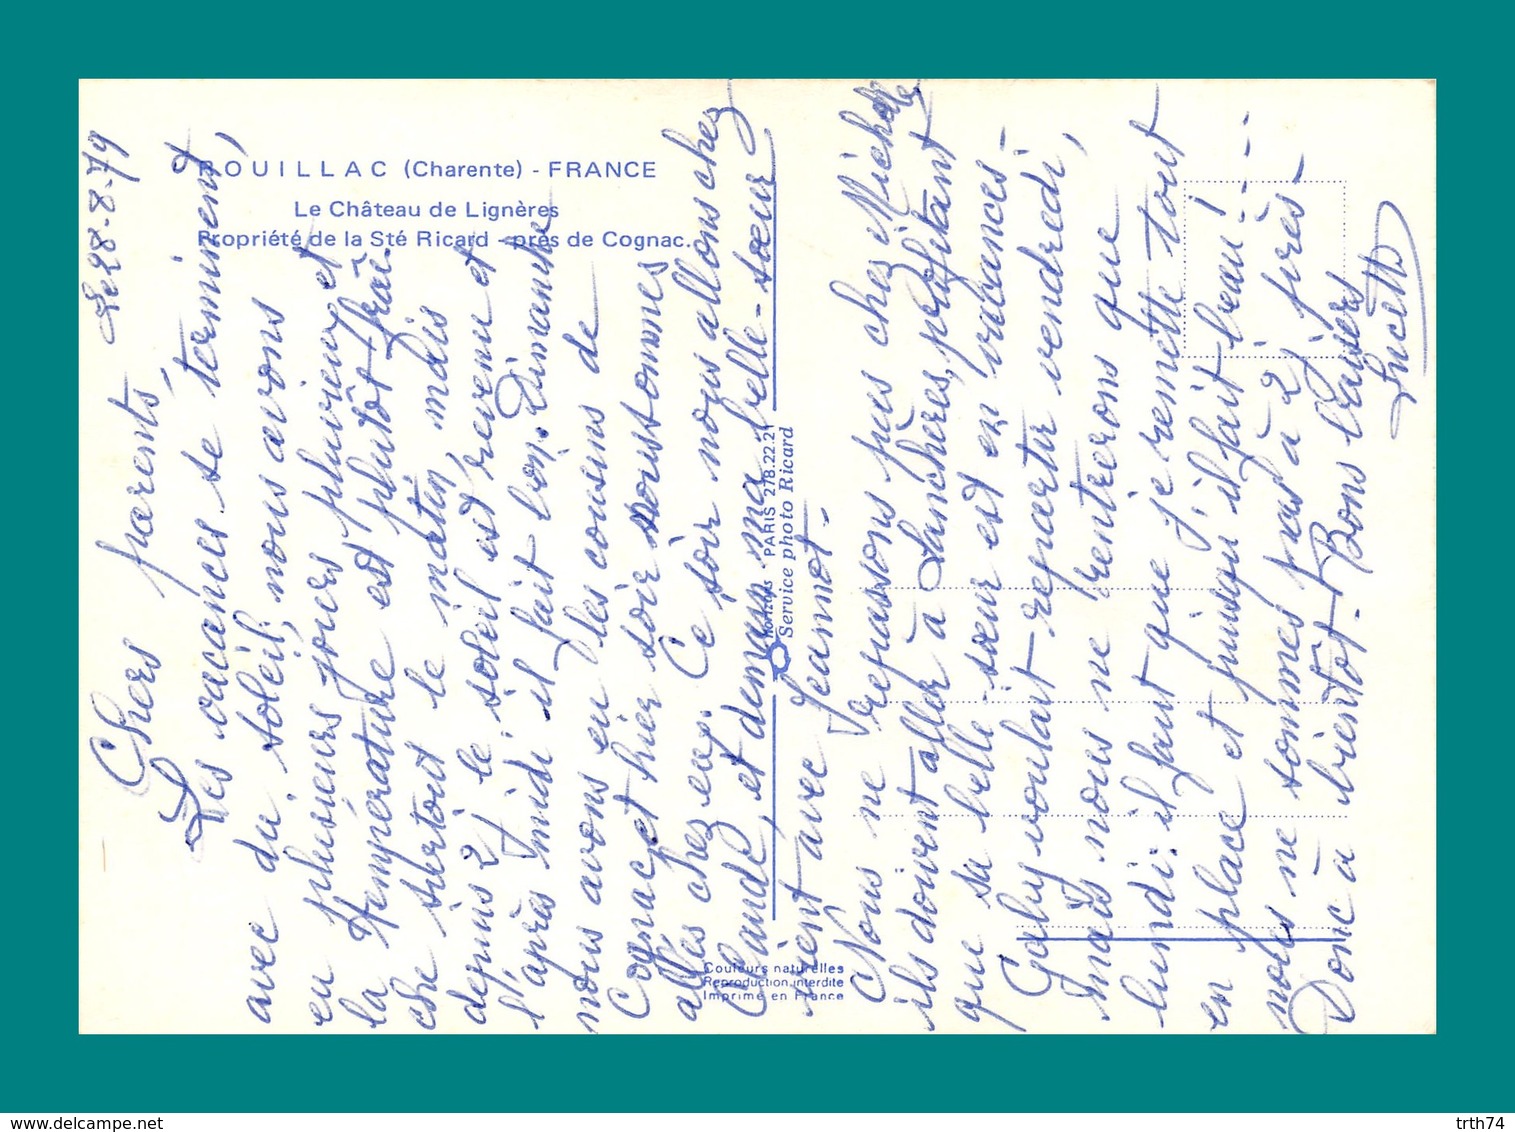 ROUILLAC (Charente) - FRANCE
Le Château de Lignères
Propriété de la Sté Ricard - près de Cognac.
Le 28-8-79
Chers parents,
Les vacances se terminent,
avec du soleil; nous avons
eu plusieurs jours pluvieux et
la température est plutôt fraî-
che surtout le matin, mais
depuis 2 j le soleil est revenu et
l'après midi il fait bon. Dimanche
nous avons eu les cousins de
Cognac et hier soir nous sommes
allés chez eux. Ce soir nous allons chez
Claude, et demain ma belle-sœur
vient avec Jeannot-
Nous ne repassons pas chez Michèle
ils doivent aller à Lanchères, profitant
que sa belle sœur est en vacances-
Gaby voulait repartir vendredi,
mais nous ne rentrerons que
lundi: il faut que je remette tout
en place et puisqu'il fait beau!
nous ne sommes pas à 2 j près-
Donc à bientôt- Bons baisers
Lucette
PARIS 278.22.21
Service photo Ricard
Couleurs naturelles
Reproduction interdite
Imprimé en France
trth74